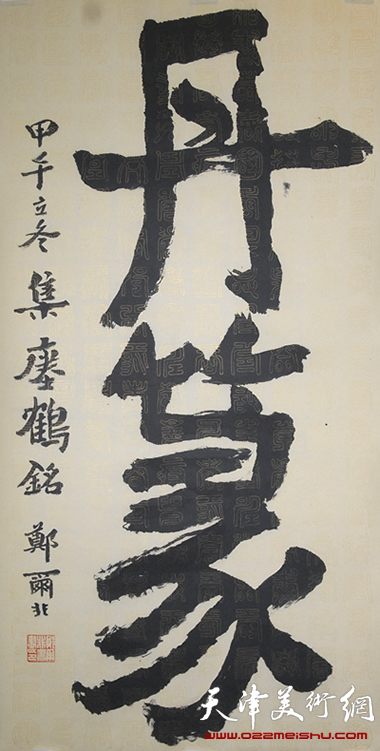 丹篆
甲午立冬 集瘞鶴銘 鄭爾非
天津美術網
www.022meishu.com